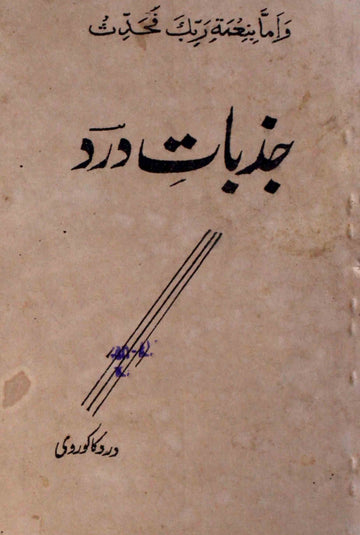 وَاَمَّا بِنِعْمَةِ رَبِّكَ فَحَدِّثْ
جذباتِ درد
درد کاکوروی